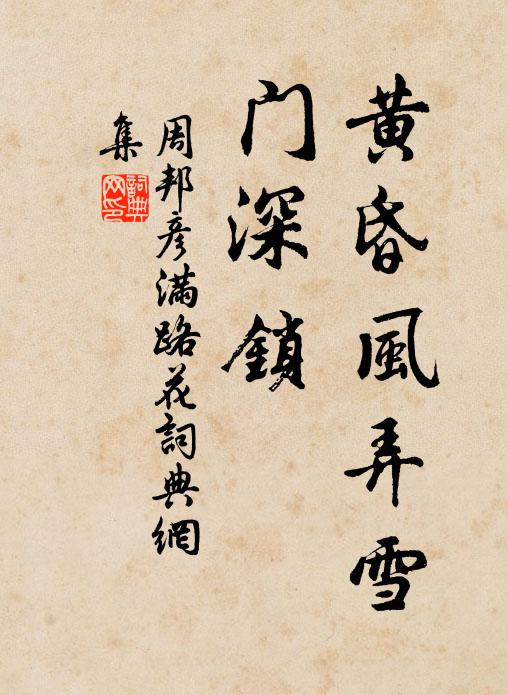 黃昏風弄雪
門深鎖
周邦彥滿路花詞典網
集
詞典
网印